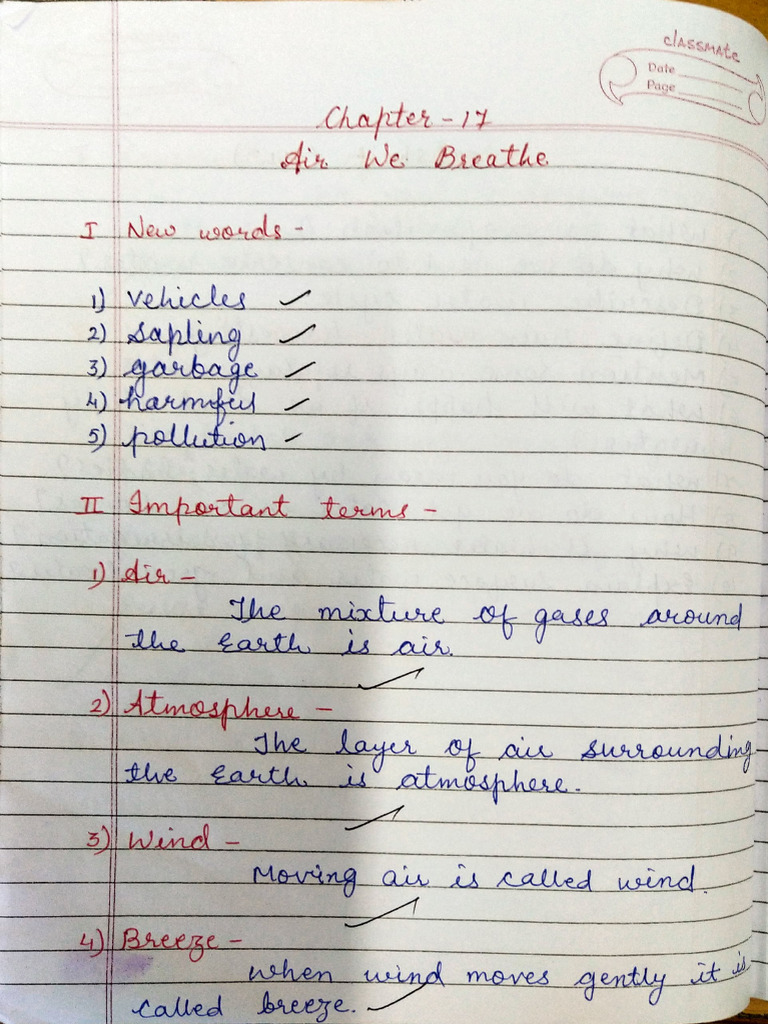 classmate
Date
Page
Chapter - 17
Air We Breathe
I New words -
1) vehicles
2) sapling
3) garbage
4) harmful
5) pollution
II Important terms -
1) Air -
The mixture of gases around
the Earth is air.
2) Atmosphere -
The layer of air surrounding
the Earth is atmosphere.
3) Wind -
Moving air is called wind.
4) Breeze -
when wind moves gently it is
called breeze.